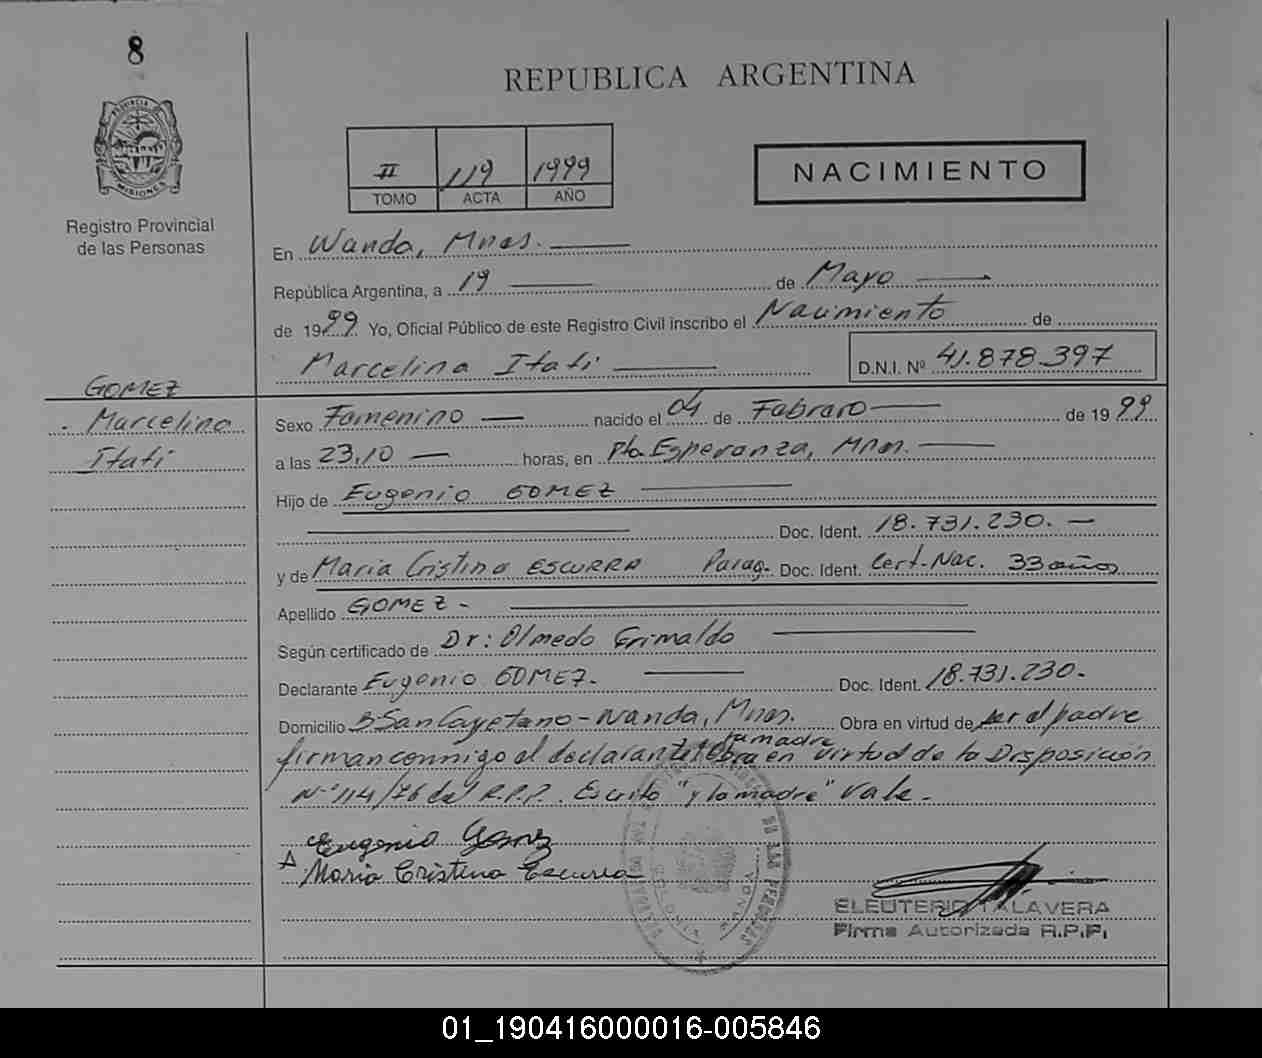 8
REPUBLICA ARGENTINA
PROVINCIA DE MISIONES
Registro Provincial
de las Personas
II 119 1999
TOMO ACTA AÑO
NACIMIENTO
En Wanda, Mnes.
República Argentina, a 19 de Mayo
de 1999 Yo, Oficial Público de este Registro Civil inscribo el Nacimiento de
Marcelina Itati D.N.I. Nº 41.878.397
GOMEZ
Marcelina
Itati
Sexo Femenino nacido el 04 de Febrero de 1999
a las 23,10 horas, en Pto. Esperanza, Mnes.
Hijo de Eugenio GOMEZ
Doc. Ident. 18.731.230.
y de Maria Cristina ESCURRA Parag. Doc. Ident. Cert. Nac. 33 años
Apellido GOMEZ -
Según certificado de Dr: Olmedo Grimaldo
Declarante Eugenio GOMEZ. Doc. Ident. 18.731.230.
Domicilio Bº San Cayetano - Wanda, Mnes. Obra en virtud de ser el padre
y la madre
firman conmigo el declarante Obra en virtud de la Disposición
Nº 114/76 del R.P.P. Escrito "y la madre" Vale.
Eugenio Gomez
Maria Cristina Escurra
ELEUTERIO TALAVERA
Firma Autorizada R.P.P.
WANDA
01_190416000016-005846